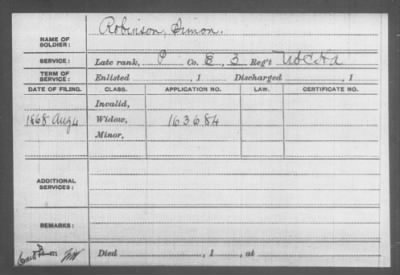 NAME OF SOLDIER: Robinson, Simon.
SERVICE: Late rank, P Co. E, 3 Reg't U.S.C.H.A
TERM OF SERVICE: Enlisted , 1 Discharged , 1
DATE OF FILING. CLASS. APPLICATION NO. LAW. CERTIFICATE NO.
Invalid,
1868 Aug 4 Widow, 163684
Minor,
ADDITIONAL SERVICES:
REMARKS:
Died , 1 , at